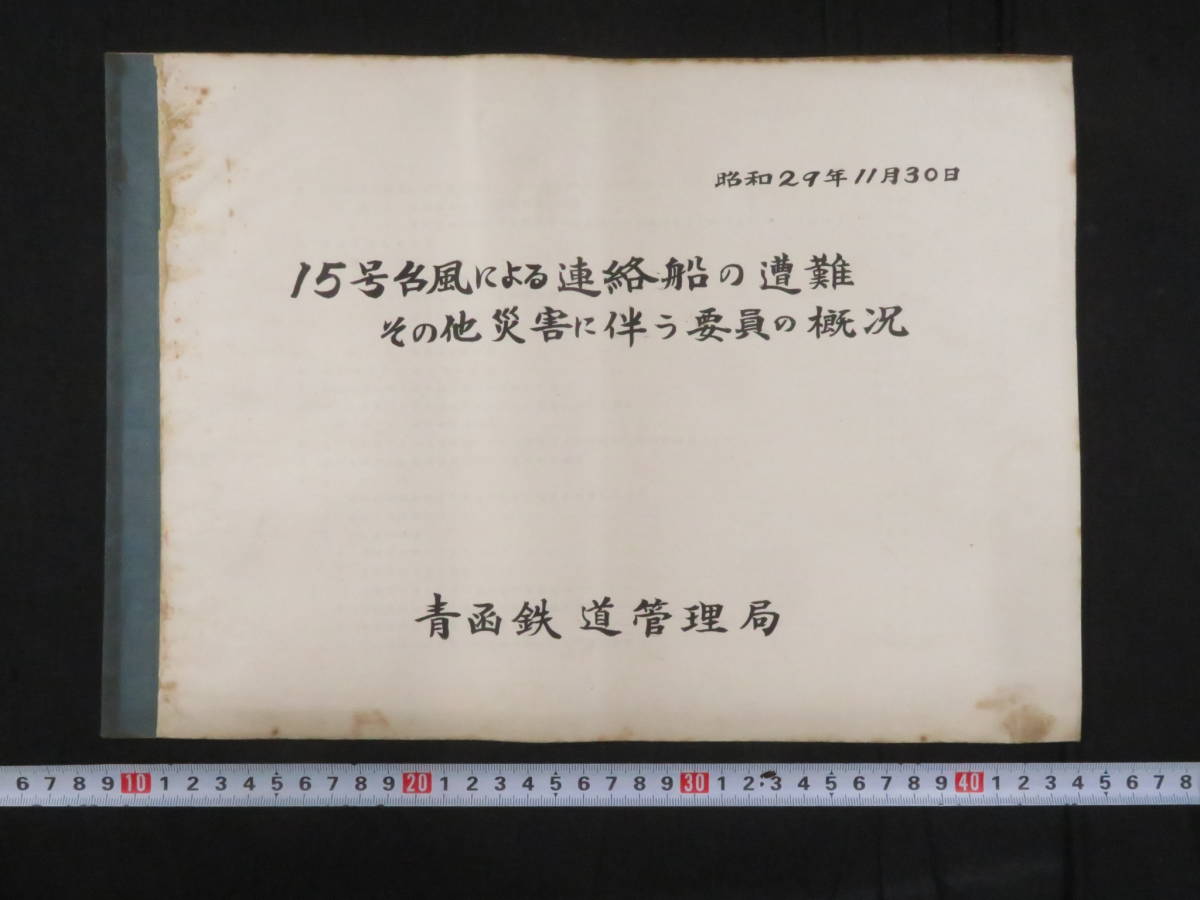 昭和29年11月30日
15号台風による連絡船の遭難
その他災害に伴う要員の概況
青函鉄道管理局
6 7 8 9 10 1 2 3 4 5 6 7 8 9 20 1 2 3 4 5 6 7 8 9 30 1 2 3 4 5 6 7 8 9 40 1 2 3 4 5 6 7 8